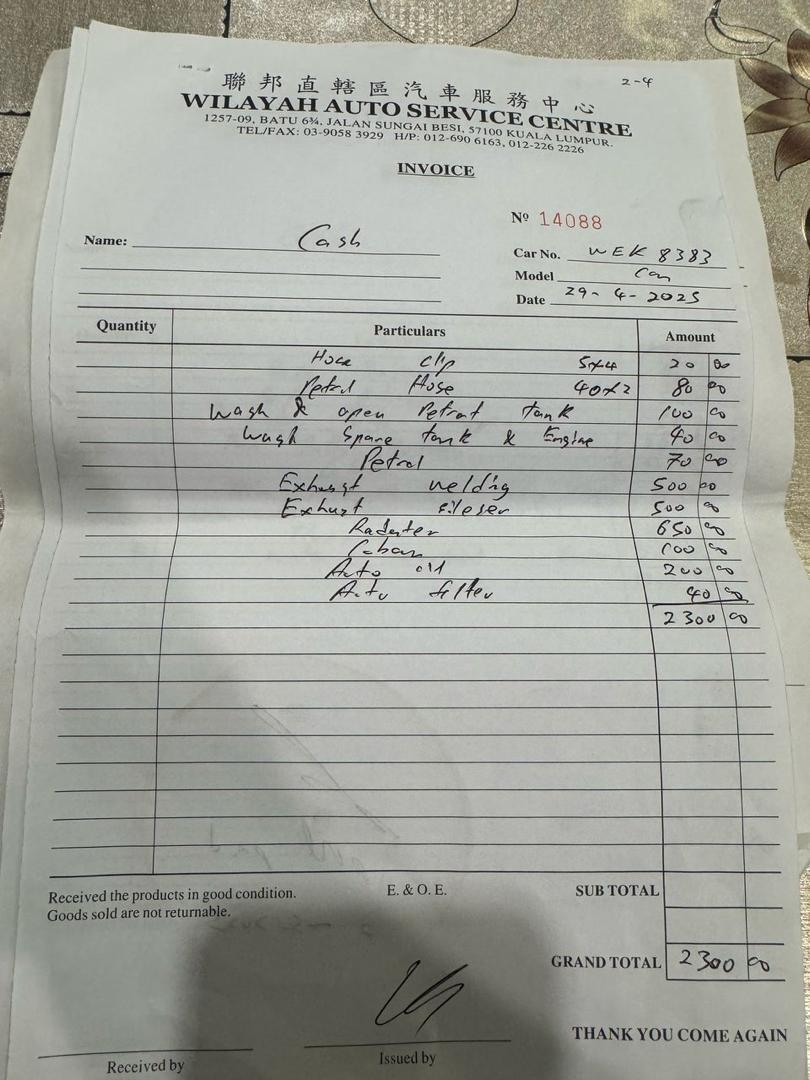 2-4
聯邦直轄區汽車服務中心
WILAYAH AUTO SERVICE CENTRE
1257-09, BATU 6¾, JALAN SUNGAI BESI, 57100 KUALA LUMPUR.
TEL/FAX: 03-9058 3929 H/P: 012-690 6163, 012-226 2226
INVOICE
Nº 14088
Name: Cash
Car No. WEK 8383
Model
Date 29-4-2025
Quantity Particulars Amount
Hose clip 5x4 20 00
Petrol Hose 40x2 80 00
Wash & open Petrol tank 100 00
Wash Spare tank & Engine 40 00
Petrol 70 00
Exhust welding 500 00
Exhust 500 00
Radater 650 00
100 00
Auto oil 200 00
Auto filter 40 00
2300 00
Received the products in good condition.
Goods sold are not returnable.
E. & O. E.
SUB TOTAL
GRAND TOTAL 2300 00
THANK YOU COME AGAIN
Received by
Issued by